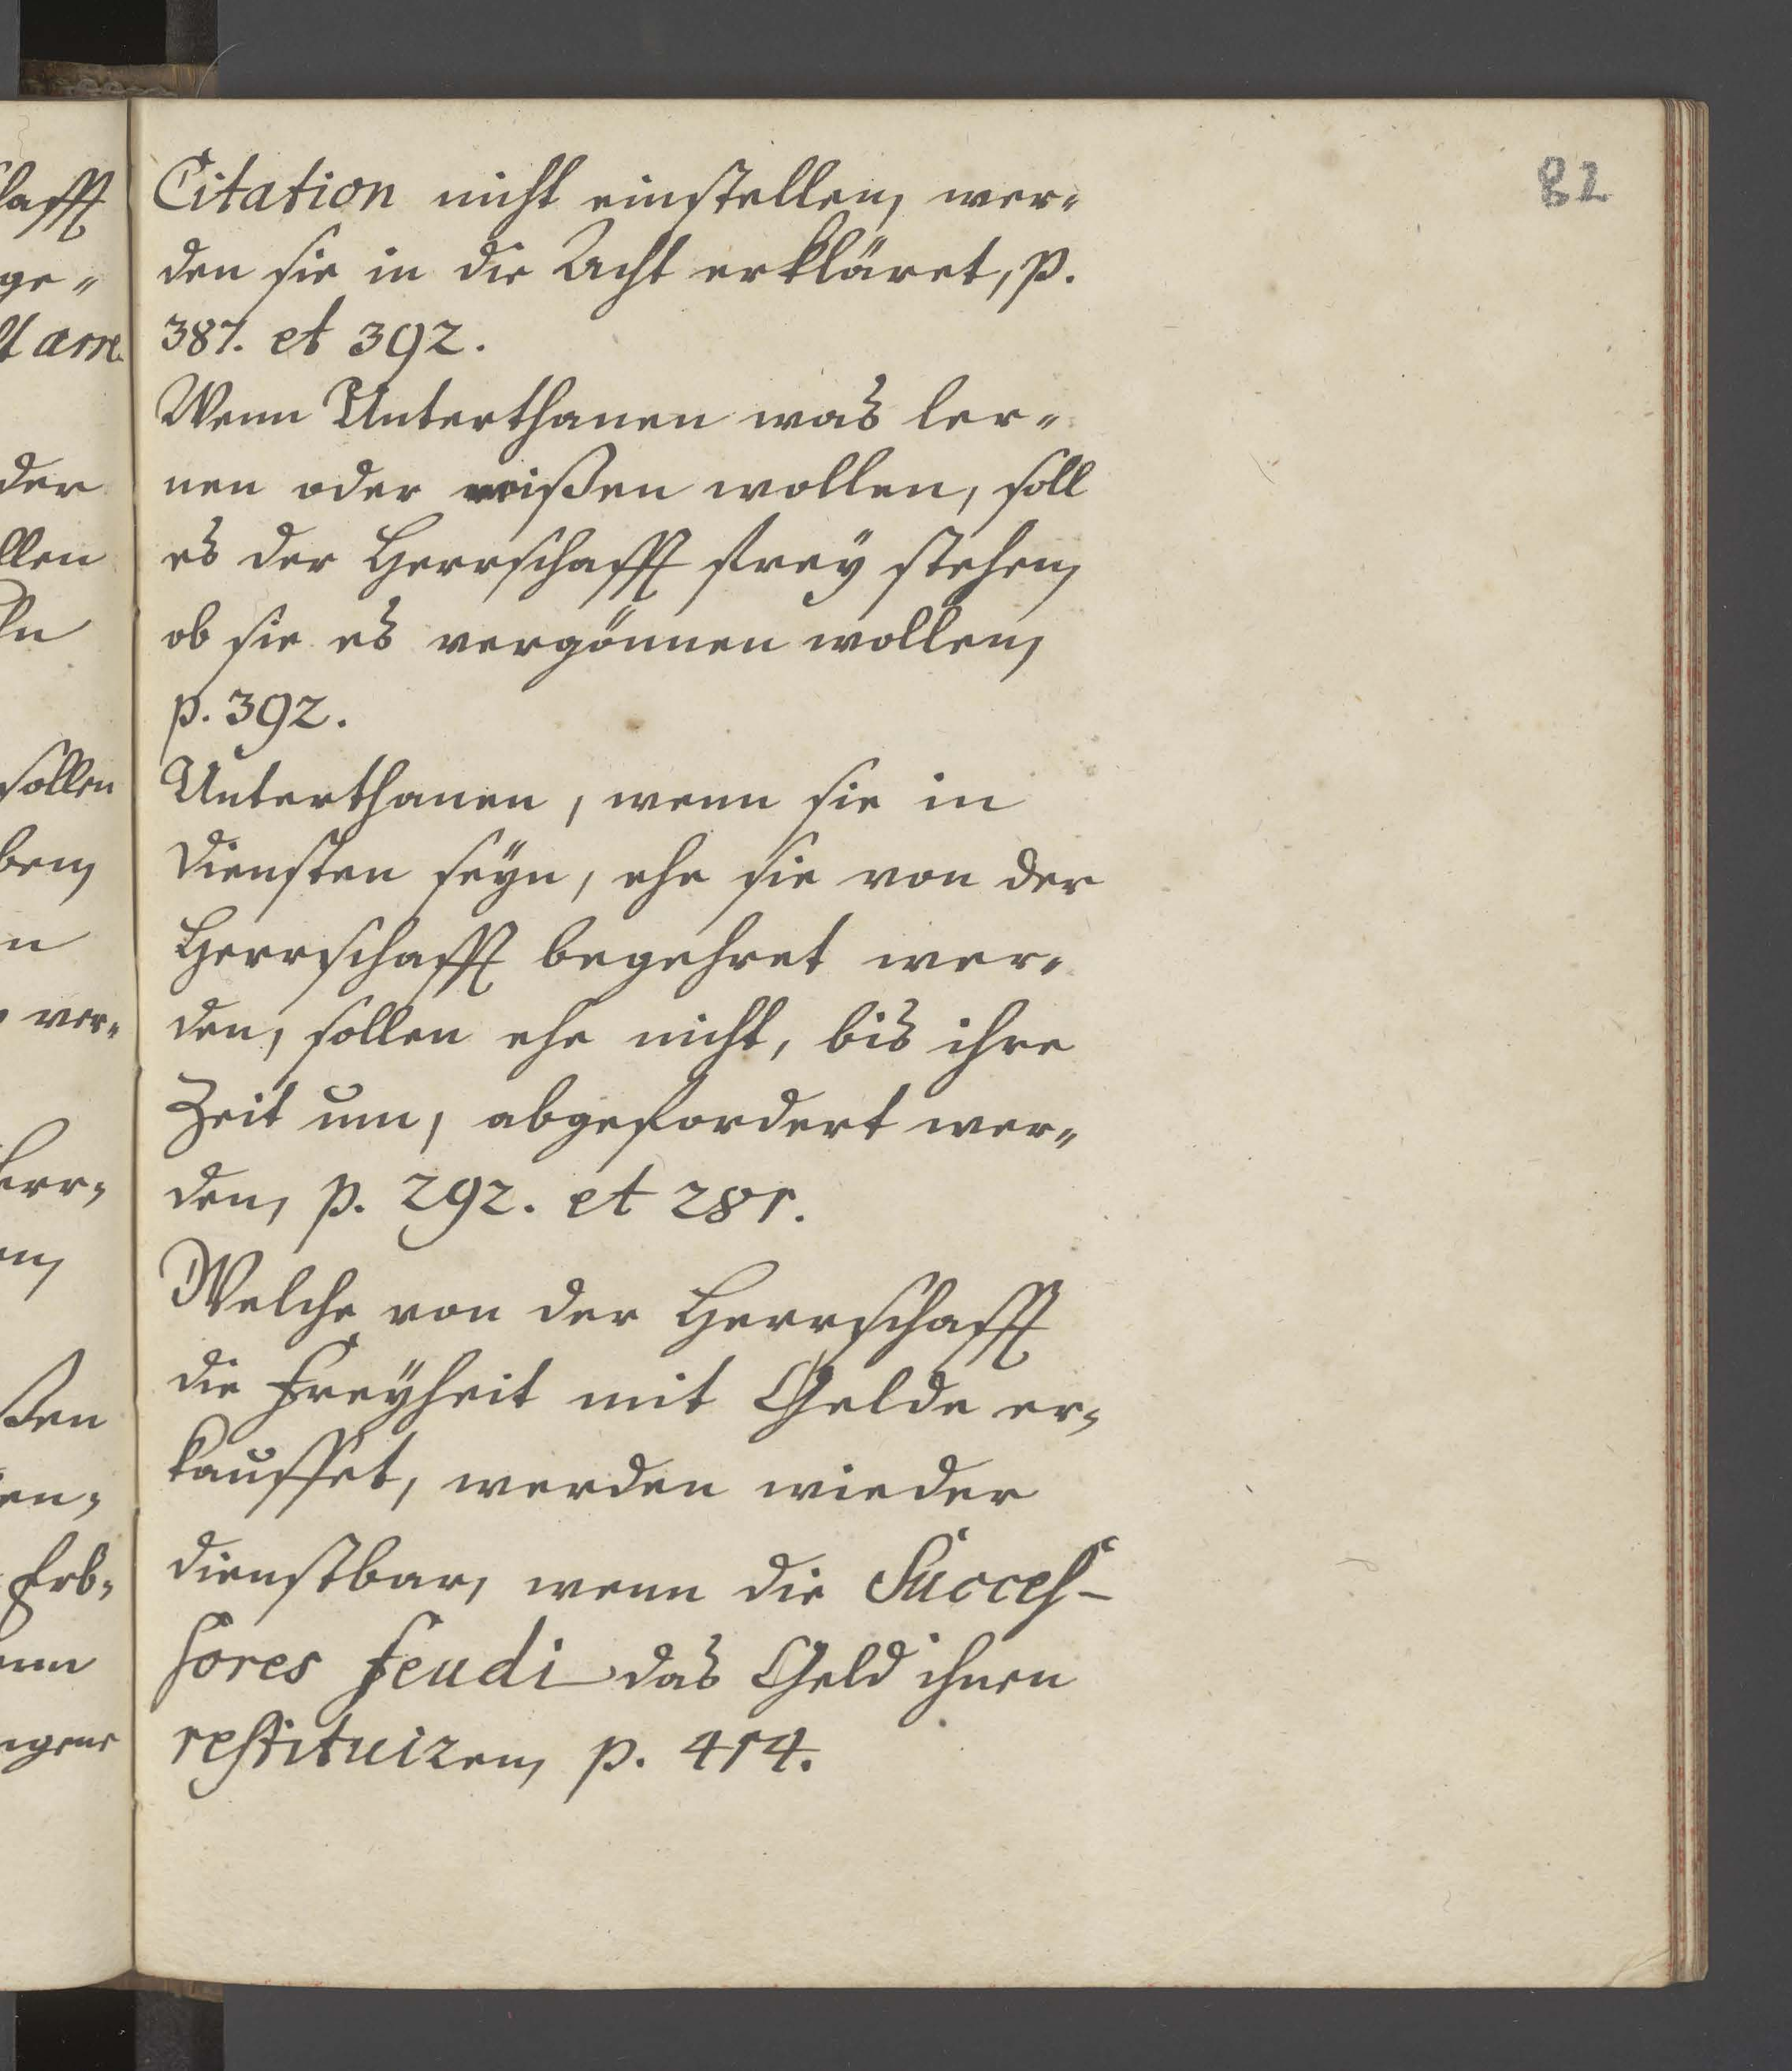 82
Citation nicht einstellen, wer-
den sie in die Acht erkläret, p.
387. et 392.
Wenn Unterthanen was ler-
nen oder wißen wollen, soll
es der Herrschafft frey stehen,
ob sie es vergönnen wollen,
p. 392.
Unterthanen, wenn sie in
Diensten seÿn, ehe sie von der
Herrschafft begehret wer-
den, sollen ehe nicht, bis ihre
Zeit um, abgefordert wer-
den, p. 292. et 281.
Welche von der Herrschafft
die Freÿheit mit Gelde er-
kauffet, werden wieder
dienstbar, wenn die Succes-
sores feudi das Geld ihnen
restituiren, p. 414.